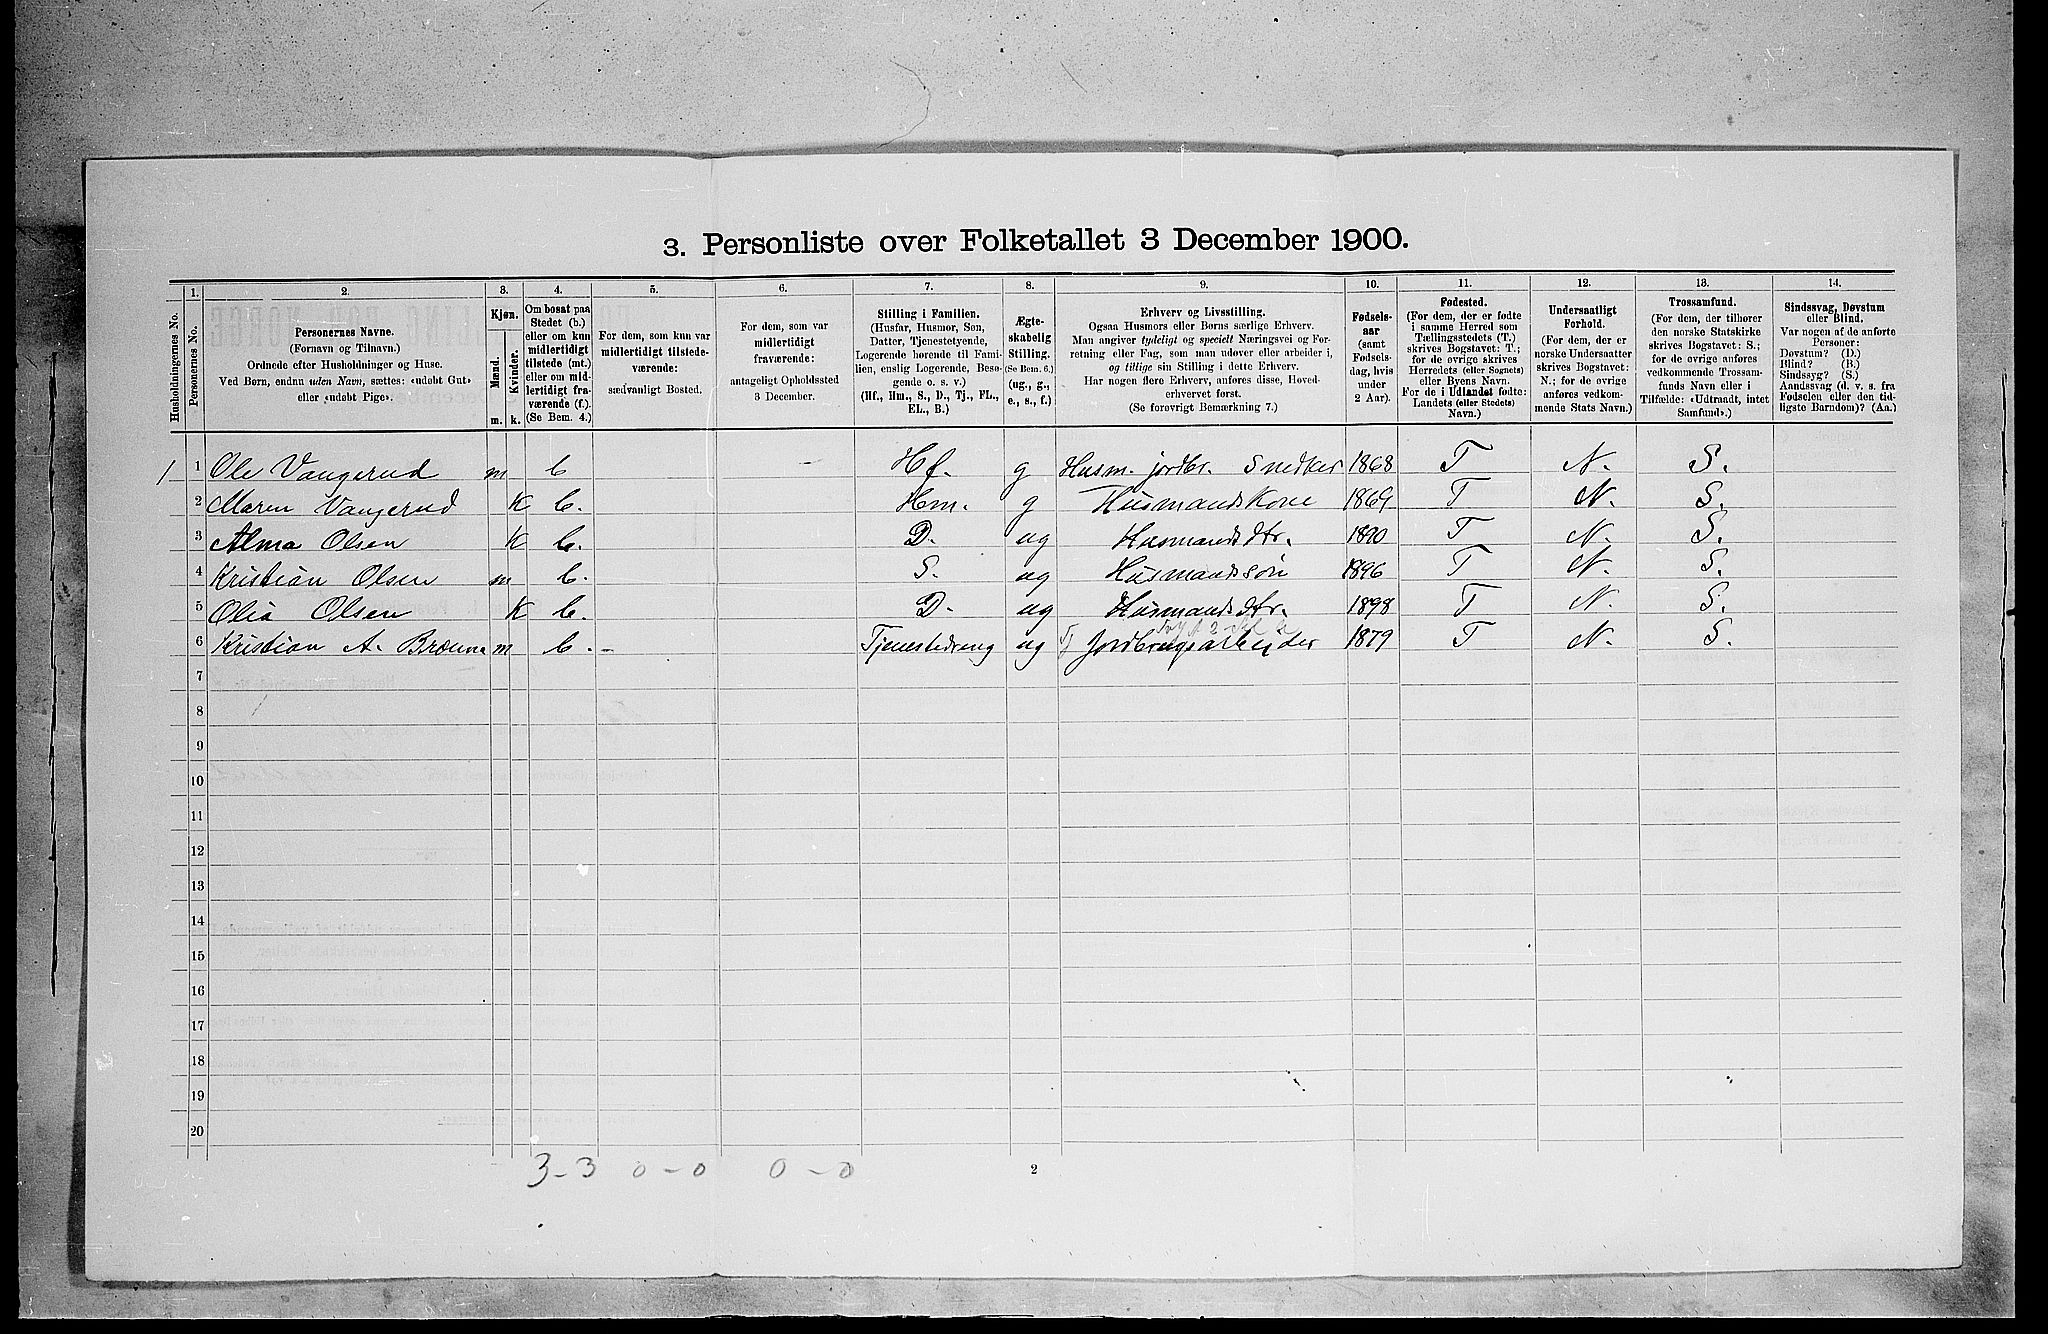 3. Personliste over Folketallet 3 December 1900.
Husholdningernes No.
1. Personernes No.
2. Personernes Navne. (Fornavn og Tilnavn.) Ordnede efter Husholdninger og Huse. Ved Børn, endnu uden Navn, sættes: «udøbt Gut» eller «udøbt Pige».
3. Kjøn. Mænd. m. Kvinder. k.
4. Om bosat paa Stedet (b.) eller om kun midlertidigt tilstede (mt.) eller om midlertidigt fraværende (f.). (Se Bem. 4.)
5. For dem, som kun var midlertidigt tilstedeværende: sædvanligt Bosted.
6. For dem, som var midlertidigt fraværende: antageligt Opholdssted 3 December.
7. Stilling i Familien. (Husfar, Husmor, Søn, Datter, Tjenestetyende, Logerende hørende til Familien, enslig Logerende, Besøgende o. s. v.) (Hf., Hm., S., D., Tj., FL., EL., B.)
8. Ægteskabelig Stilling. (Se Bem. 6.) (ug., g., e., s., f.)
9. Erhverv og Livsstilling. Ogsaa Husmors eller Børns særlige Erhverv. Man angiver tydeligt og specielt Næringsvei og Forretning eller Fag, som man udøver eller arbeider i, og tillige sin Stilling i dette Erhverv. Har nogen flere Erhverv, anføres disse, Hovederhvervet først. (Se forøvrigt Bemærkning 7.)
10. Fødselsaar (samt Fødselsdag, hvis under 2 Aar).
11. Fødested. (For dem, der er fødte i samme Herred som Tællingsstedets (T.) skrives Bogstavet: T.; for de øvrige skrives Herredets (eller Sognets) eller Byens Navn. For de i Udlandet fødte: Landets (eller Stedets) Navn.)
12. Undersaatligt Forhold. (For dem, der er norske Undersaatter skrives Bogstavet: N.; for de øvrige anføres vedkommende Stats Navn.)
13. Trossamfund. (For dem, der tilhører den norske Statskirke skrives Bogstavet: S.; for de øvrige anføres vedkommende Trossamfunds Navn eller i Tilfælde: «Udtraadt, intet Samfund».)
14. Sindssvag, Døvstum eller Blind. Var nogen af de anførte Personer: Døvstum? (D.) Blind? (B.) Sindssyg? (S.) Aandssvag (d. v. s. fra Fødselen eller den tidligste Barndom)? (Aa.)
1 1 Ole Vangerud m b - Hf. g Husm. jordbr. Snedker 1868 T N. S.
2 Maren Vangerud K b. Hm. g Husmandskone 1869 T N. S.
3 Alma Olsen K b. D. ug Husmandsdtr. 1890 T N. S.
4 Kristian Olsen m b. S. ug Husmandssøn 1896 T N. S.
5 Olia Olsen K b. D. ug Husmandsdtr. 1898 T N. S.
6 Kristian A. Brænna m b. - Tjenestedreng ug Tj Jordbrugsarbeider 1879 T N. S.
7
8
9
10
11
12
13
14
15
16
17
18
19
20
3-3 0-0 0-0 2